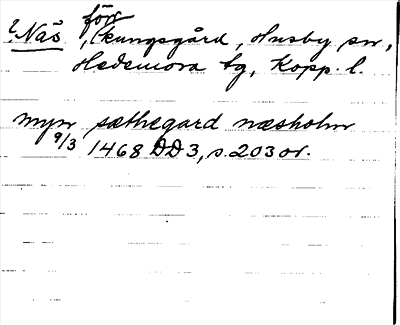 ? Näs, förr kungsgård, Husby sn,
Hedemora tg, Kopp. l.
myn sæthegard næsholm
9/3 1468 DD3, s. 203 or.